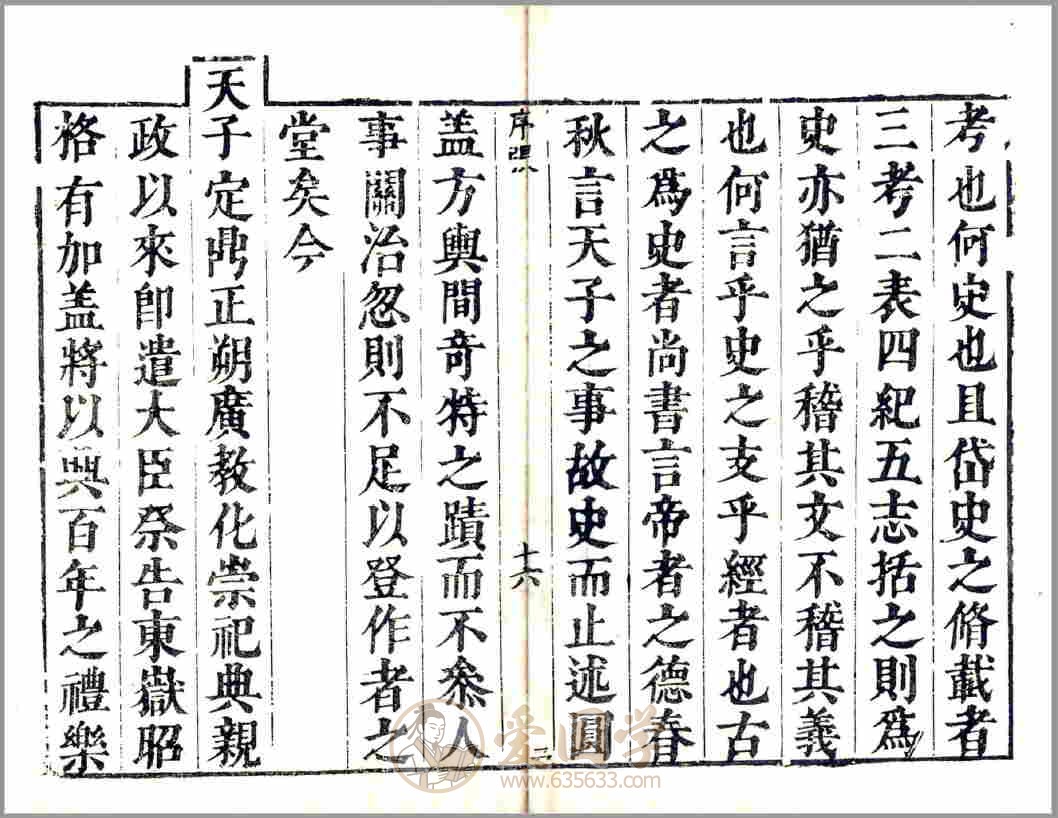 考也何史也且岱史之脩載者
三考二表四紀五志括之則爲
史亦猶之乎稽其文不稽其義
也何言乎史之支乎經者也古
之爲史者尚書言帝者之德春
秋言天子之事故史而止述圓
序
十六
二
盖方輿間竒特之蹟而不叅人
事關治忽則不足以登作者之
堂矣今
天子定鼎正朔廣教化崇祀典親
政以來卽遣大臣祭告東嶽昭
格有加盖將以興百年之禮樂
爱国学
www.635633.com